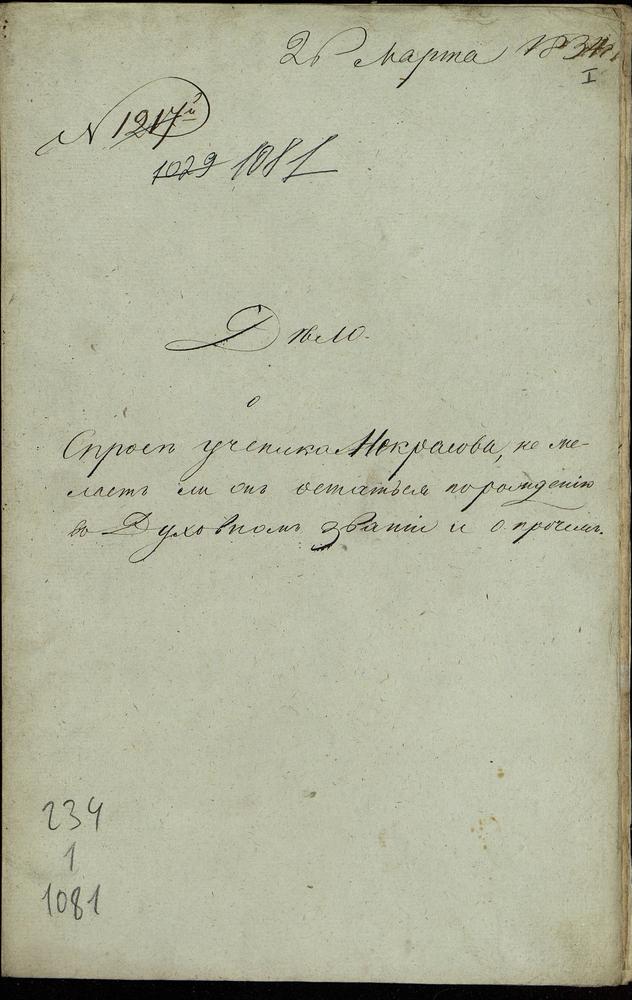 26 Марта 1834
I
N 1217й
1029 1081
Дѣло.
о
Спросѣ ученика Некрасова, не же-
лаетъ ли онъ остаться по рожденію
въ Духовномъ званіи и о прочемъ.
234
1
1081